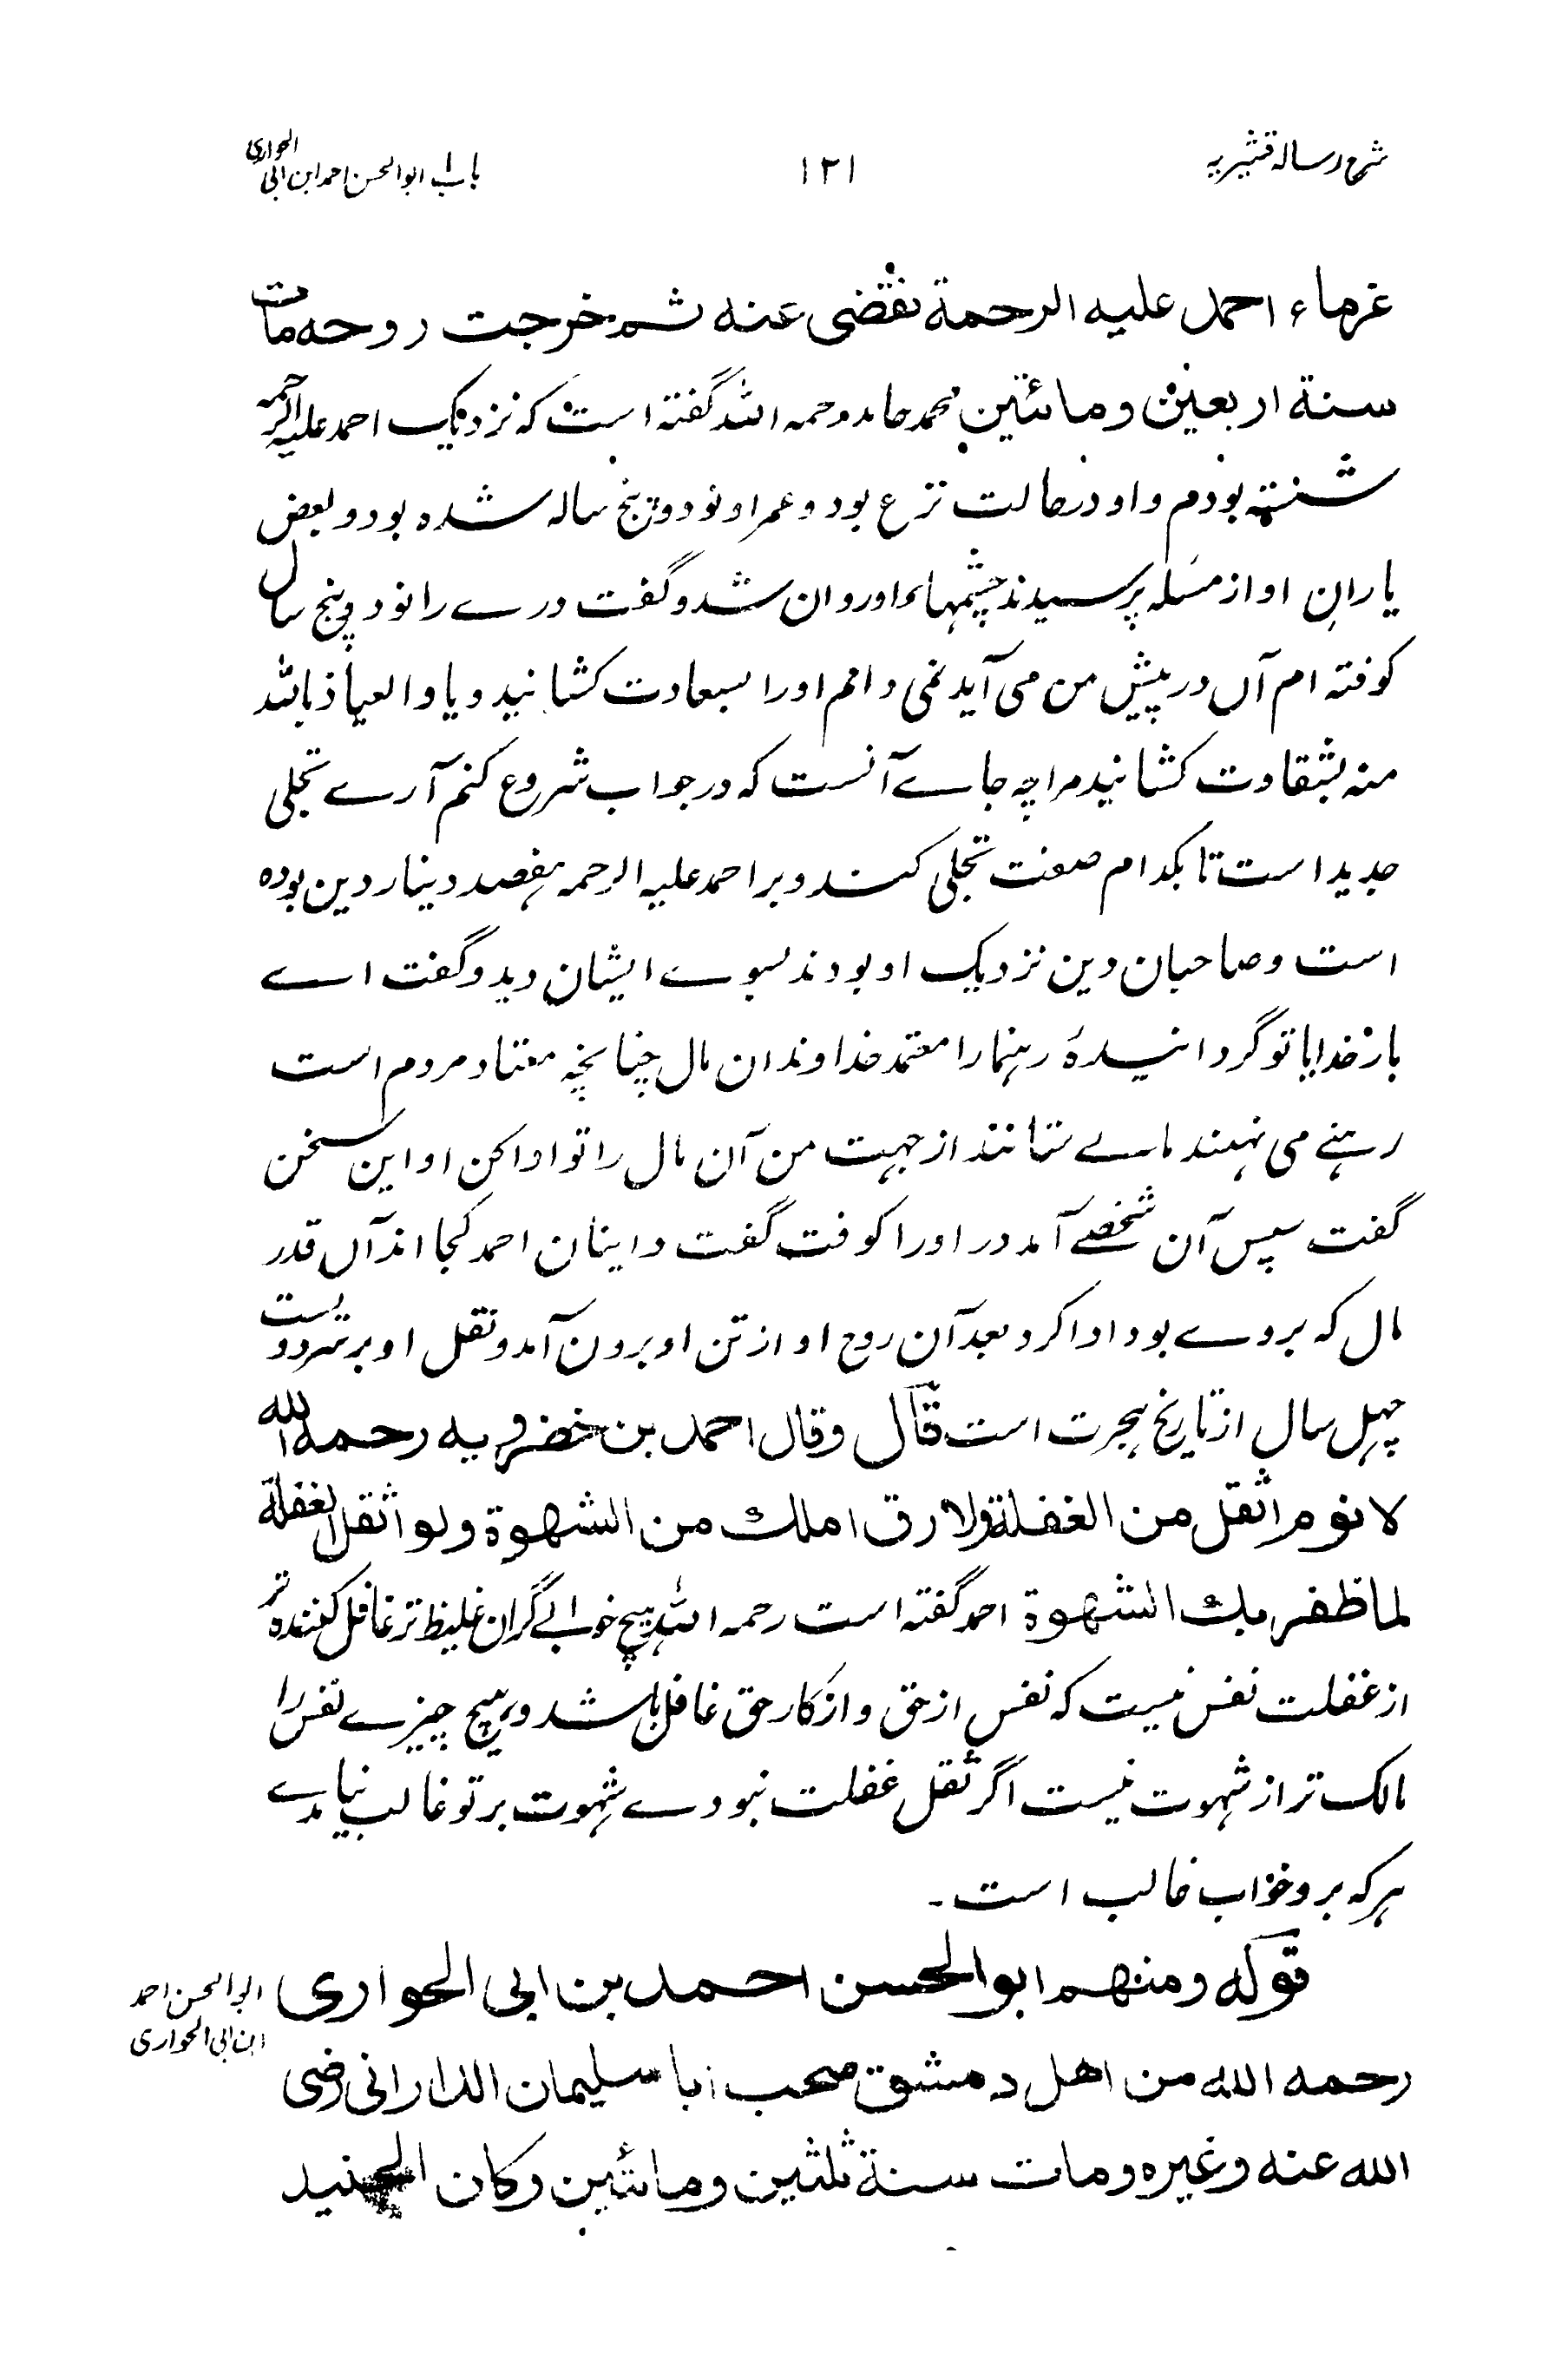 شرح رسالہ قشیریہ
۱۲۱
باب ابوالحسن احمد ابن ابی الحواری
غرماء احمد علیه الرحمة نقضی عنه ثم خرجت روحه مات
سنة اربعین ومائتین محمد حامد رحمه الله گفته است که نزدیک احمد علیه الرحمه
شسته بودم و او در حالت نزع بود و عمر او نود و پنج ساله شده بود و بعض
یاران او از مسٔله پرسیدند چشمهاء او روان شد و گفت درے را نود و پنج سال
کوفته ام آں در پیش من می آید نمی دانم اورا بسعادت کشانید و یا والعیاذ بالله
منه بشقاوت کشانید مرا چه جاے آنست که در جواب شروع کنم آرے تجلی
جدید است تا بکدام صفت تجلی کند و بر احمد علیه الرحمه هفصد دینار دین بوده
است و صاحبان دین نزدیک او بودند بسوے ایشان دید و گفت اے
بار خدایا تو گردانیدۂ رهنها را معتمد خداوندان مال چنانچه معتاد مردم است
رهنے می نهند مالے ستانند از جهت من آن مال را تو ادا کن او این سخن
گفت سپس آن شخصے آمد در اورا کوفت گفت داینان احمد کجا اند آں قدر
مال که بروے بود ادا کرد بعد آن روح او از تن او برون آمد و نقل او بر سر دویست
چهل سال از تاریخ هجرت است قال وقال احمد بن خضرویه رحمه الله
لا نوم اثقل من الغفلة ولا رق املك من الشهوة ولو اثقل الغفلة
لما ظفر بك الشهوة احمد گفته است رحمه الله هیچ خوابے گران غلیظ تر غافل کننده تر
از غفلت نفس نیست که نفس از حق و از کار حق غافل باشد و هیچ چیزے نفس را
مالک تر از شهوت نیست اگر ثقل غفلت نبودے شهوت بر تو غالب نیامدے
هرکه برو خواب غالب است۔
قوله ومنهم ابوالحسن احمد بن ابی الحواری
ابوالحسن احمد
ابن ابی الحواری
رحمه الله من اهل دمشق صحب ابا سلیمان الدارانی رضی
الله عنه وغیره ومات سنة ثلثین ومائتین وکان الجنید